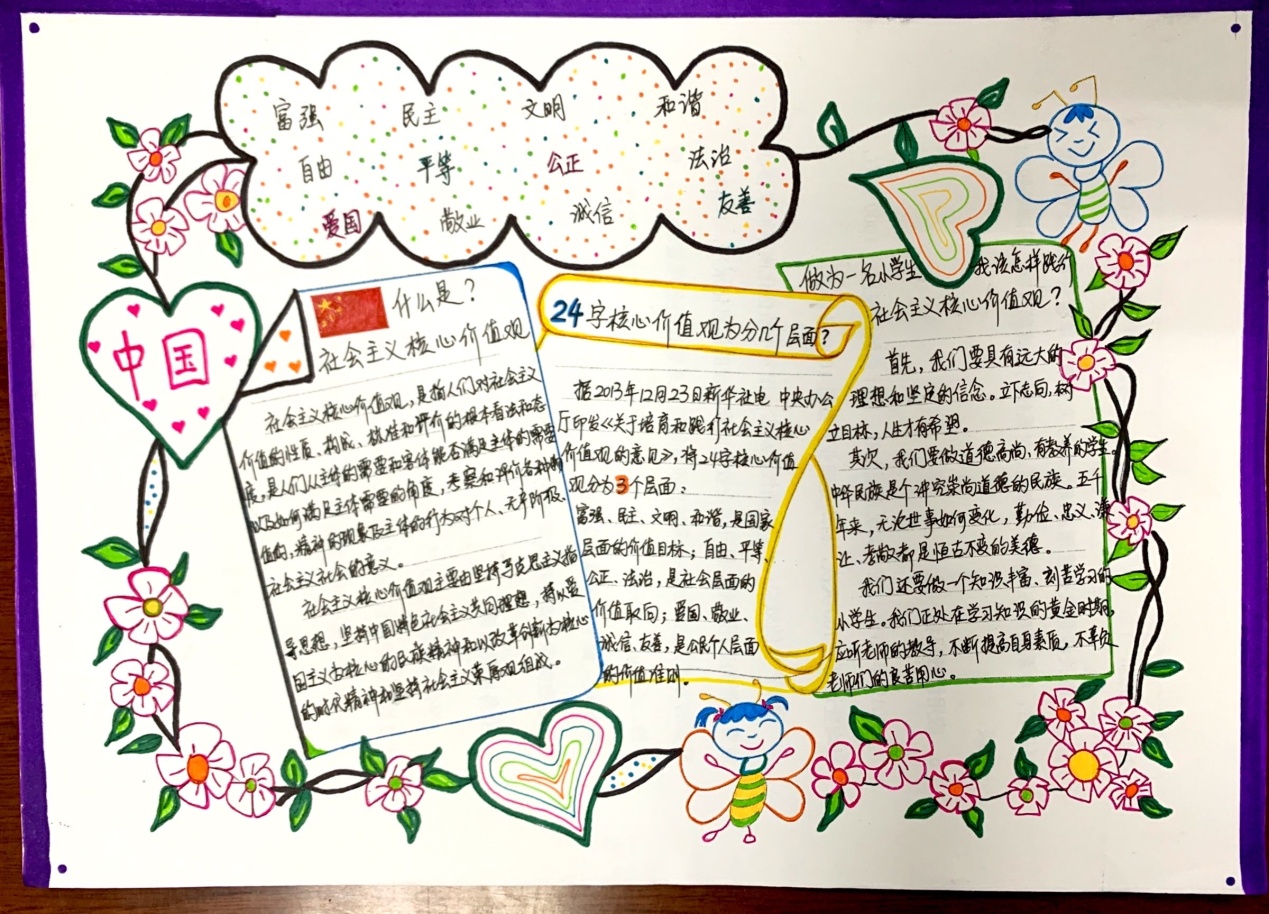 富强 民主 文明 和谐
自由 平等 公正 法治
爱国 敬业 诚信 友善
中国
什么是？
社会主义核心价值观
社会主义核心价值观，是指人们对社会主义
价值的性质、构成、标准和评价的根本看法和态
度，是人们从主体的需要和客体能否满足主体的需要
以及如何满足主体需要的角度，考察和评价各种物
值的、精神的现象及主体的行为对个人、无产阶级、
社会主义社会的意义。
社会主义核心价值观主要由坚持马克思主义指
导思想，坚持中国特色社会主义共同理想，持以爱
国主义为核心的民族精神和以改革创新为核心
的时代精神和坚持社会主义荣辱观组成。
24字核心价值观为分几个层面？
据2013年12月23日新华社电 中央办公
厅印发《关于培育和践行社会主义核心
价值观的意见》，将24字核心价值
观分为3个层面：
富强、民主、文明、和谐，是国家
层面的价值目标；自由、平等、
公正、法治，是社会层面的
价值取向；爱国、敬业、
诚信、友善，是公民个人层面
的价值准则。
做为一名小学生 我该怎样践行
社会主义核心价值观？
首先，我们要具有远大的
理想和坚定的信念。立下志向，树
立目标，人生才有希望。
其次，我们要做道德高尚、有教养的学生。
中华民族是个讲究崇尚道德的民族。五千
年来，无论世事如何变化，勤俭、忠义、谦
让、孝敬都是恒古不变的美德。
我们还要做一个知识丰富、刻苦学习的
小学生。我们正处在学习知识的黄金时期，
应听老师的教导，不断提高自身素质，不辜负
老师们的良苦用心。